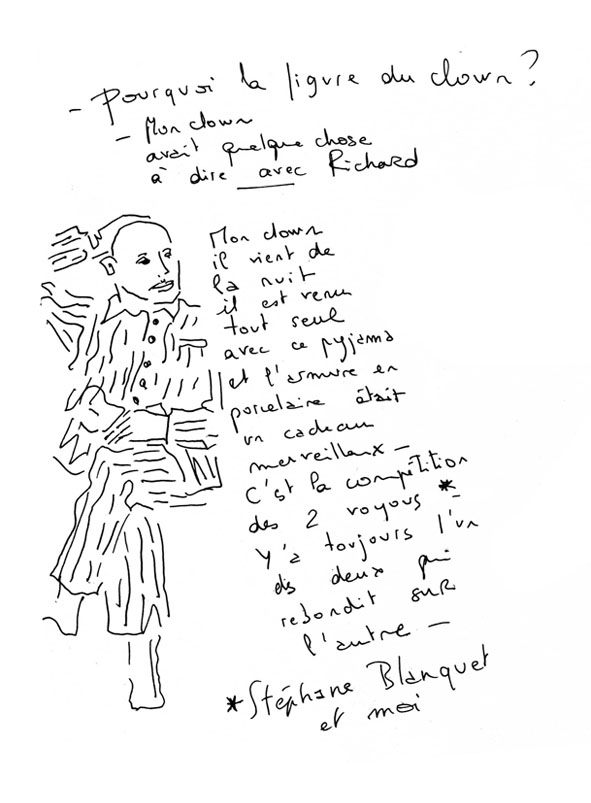 - Pourquoi la figure du clown?
- Mon clown
avait quelque chose
à dire avec Richard
Mon clown
il vient de
la nuit
il est venu
tout seul
avec ce pyjama
et l'armure en
porcelaine était
un cadeau
merveilleux -
C'est la compétition
des 2 voyous * -
Y'a toujours l'un
des deux qui
rebondit sur
l'autre -
*Stéphane Blanquet
et moi